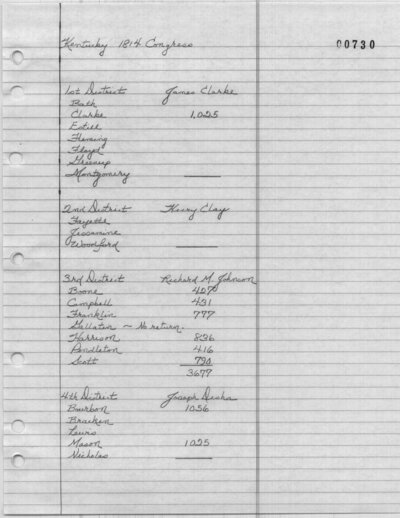 Kentucky 1814 Congress 00730
1st District James Clarke
Bath
Clarke 1,025
Estill
Fleming
Floyd
Greenup
Montgomery
2nd District Henry Clay
Fayette
Jessamine
Woodford
3rd District Richard M. Johnson
Boone
Campbell 431
Franklin 777
Gallatin - No return.
Harrison 836
Pendleton 416
Scott 790
3677
4th District Joseph Desha
Bourbon 1056
Bracken
Lewis
Mason 1025
Nicholas